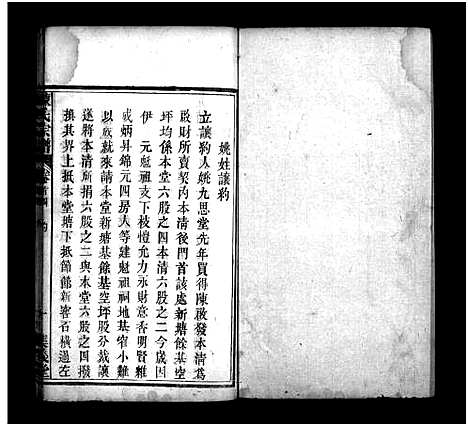 姚姓讓約
立讓約人姚九思堂先年買得陳啟發本清爲
啟財所賣契內本清後門首該處新塘餘基空
坪均係本堂六股之四本清六股之二今歲因
伊 元魁祖支下棱愷允力永財意香明賢雜
成炳昇錦元四房人等建魁祖祠地基窄小難
以成隊來請股分新塘基餘基空坪股分裁讓
遂將本清所捐六股之二與本堂六股之四撥
損其界上抵本堂塘下抵節節新窖石橫過左
氏宗譜 卷首四 約 義堂